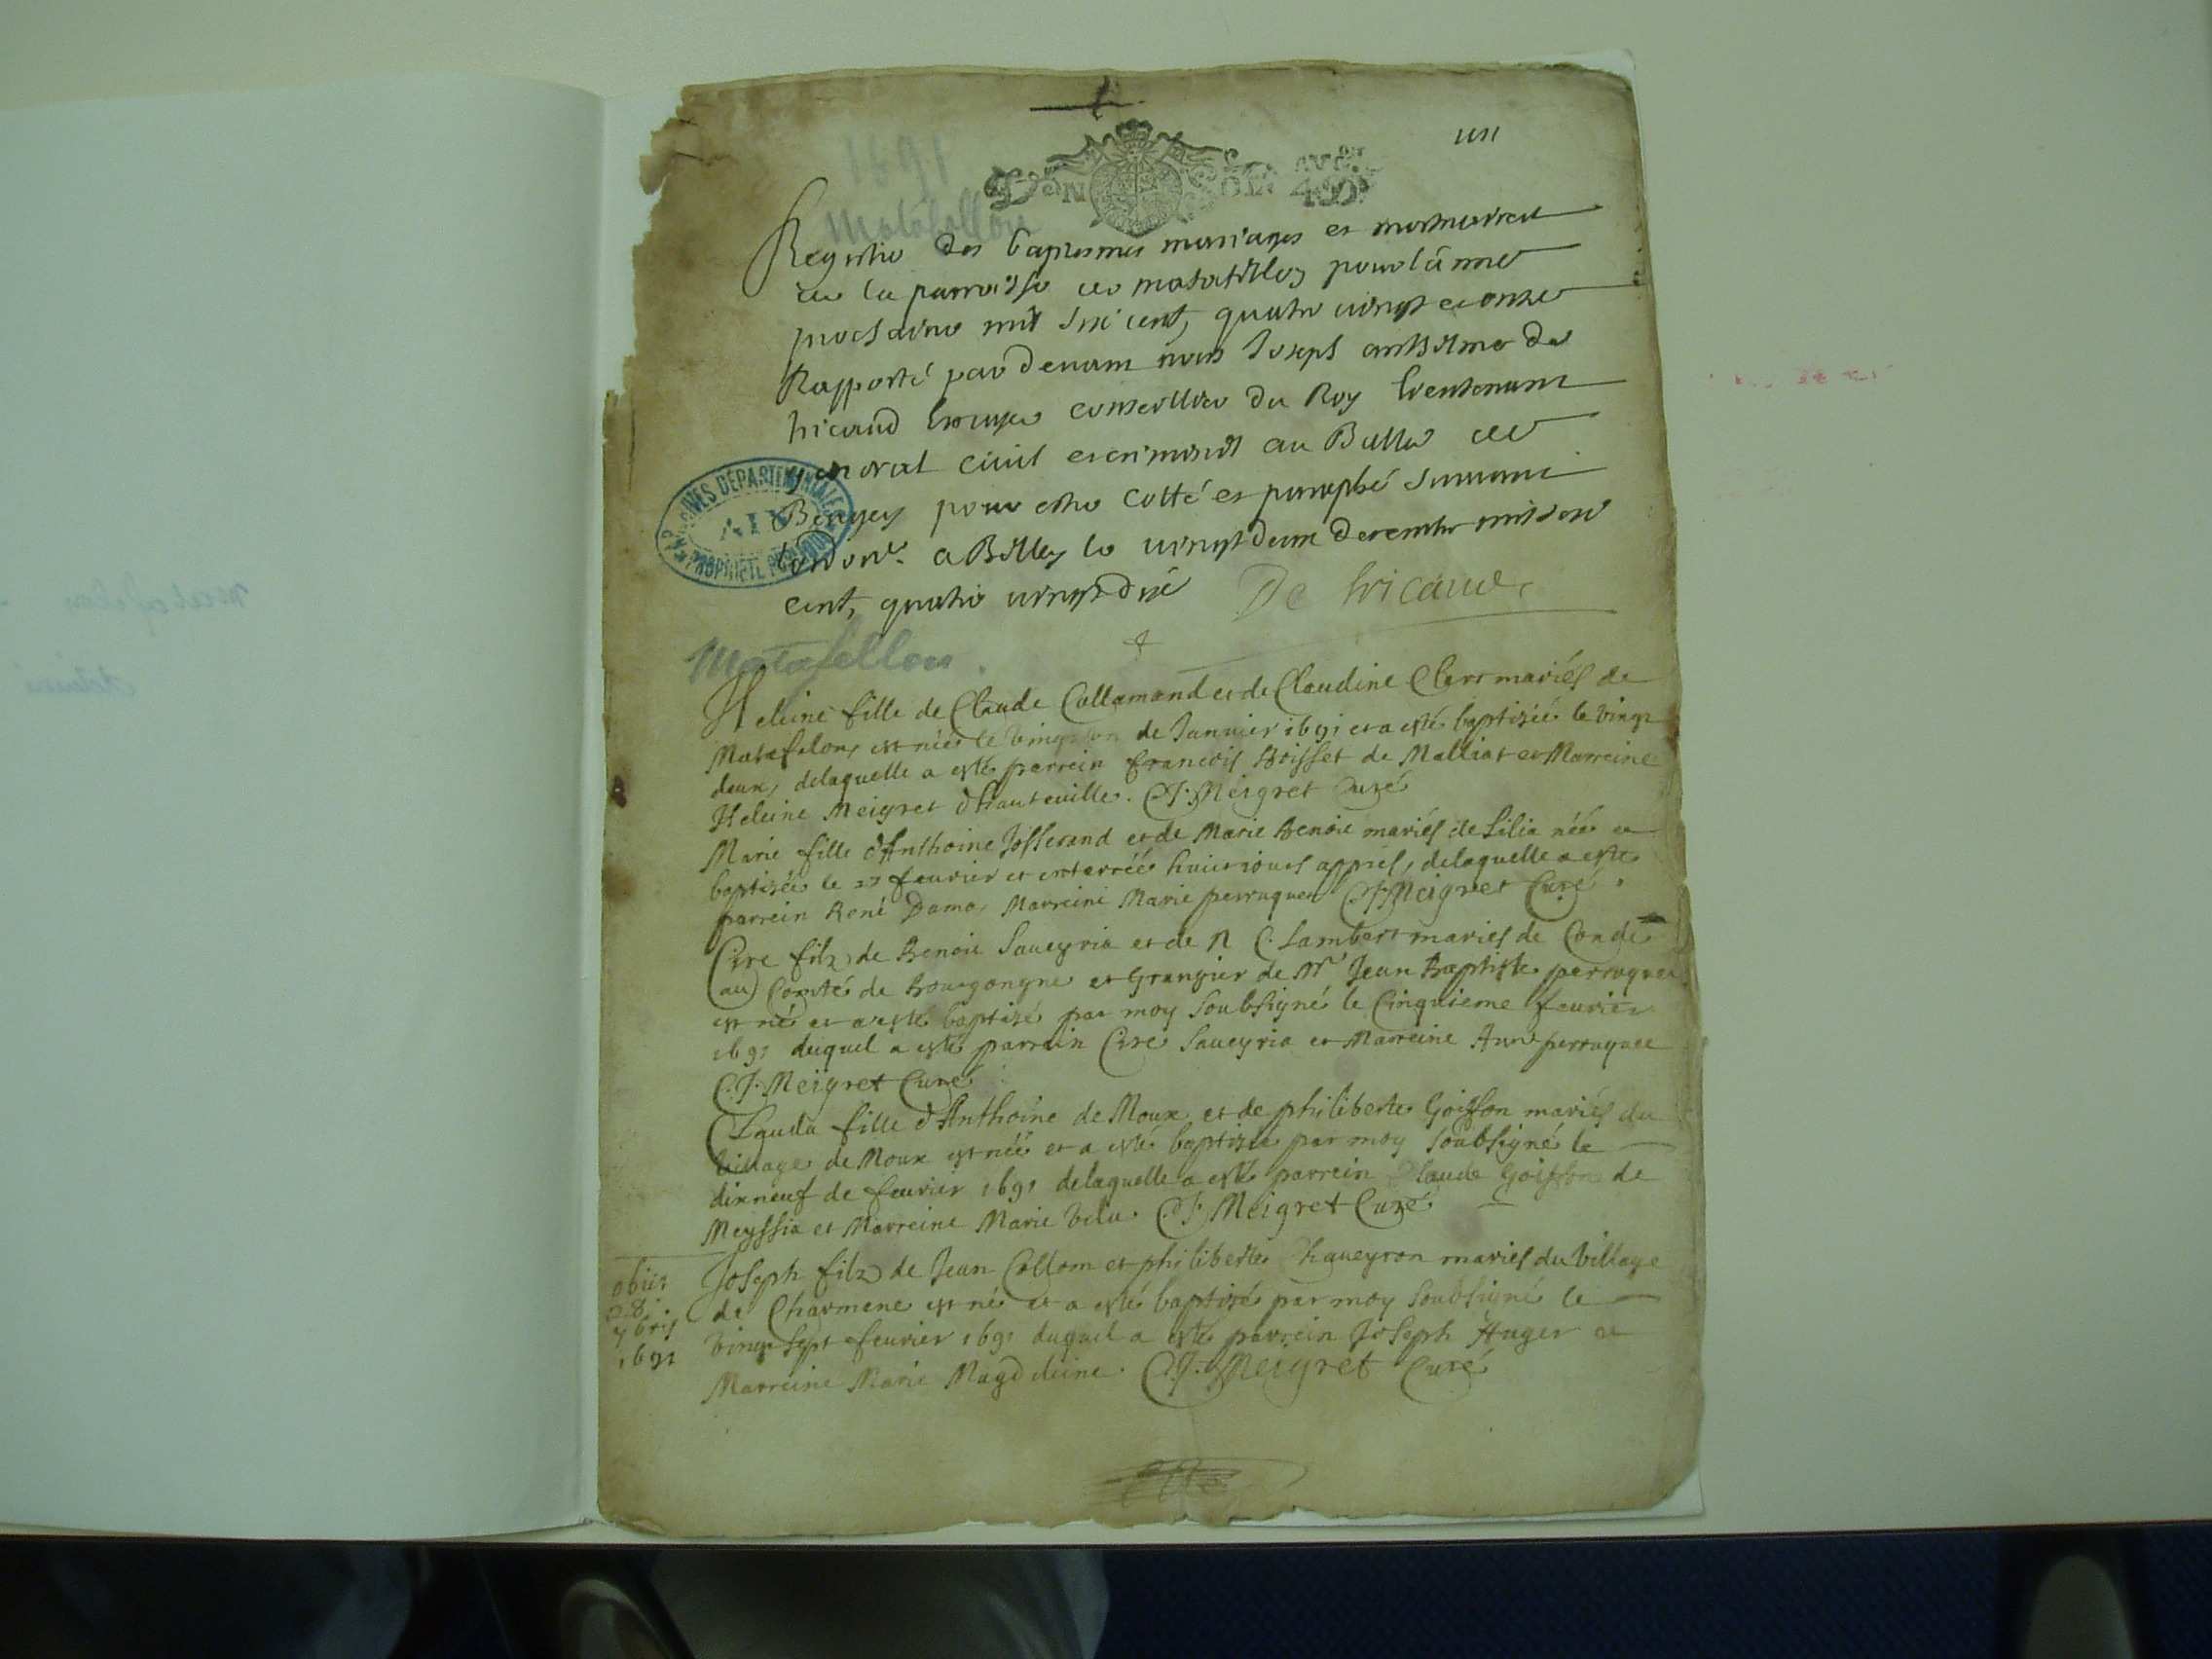 1691
Matafellon
Registre des baptesmes mariages et mortuaires
de la parroisse de matafellon pour lannee
prochaine mil six cent quatre vingt et onze
Rapporté par devant nous Joseph anthelme de
tricaud Escuyer conseiller du Roy lieutenant
general civil et criminel au Balliage de
Beugey pour estre cotté et paraphé suivant
lordon.ce a Belley le vingt deux decembre mil six
cent, quatre vingt dix De tricaud
ARCHIVES DÉPARTEMENTALES
AIN
PROPRIÉTÉ PUBLIQUE
Matafellon.
Heleine fille de Claude Collomand et de Claudine Clerc mariés de
Matafelon, est née le vingt de Januier 1691 et a esté baptisée le vingt
deux, delaquelle a esté parrein francois Boisset de Malliat et Marreine
Heleine Meigret d'hauteuille. C. J. Meigret Curé
Marie fille d'Anthoine Josserand et de Marie Benoit mariés de Silia née et
baptisée le 27 feurier et enterrée huict iours apprés, delaquelle a esté
parrein René Dama, Marreine Marie perruquet C. J. Meigret Curé
Cire filz de Benoit Saueyria et de N C. Lambert mariés de Condé
au Comté de Bourgongne et Grangier de Mr Jean Baptiste perruquet
est né et a esté baptisé par moy soubsigné le Cinquieme feurier
1691 duquel a esté parrein Cire Saueyria et Marreine Anne perruquet
C. J. Meigret Curé
Clauda fille d'Anthoine de Moux et de philiberte Goiffon mariés du
Village de Moux est née et a esté baptisée par moy soubsigné le
dixneuf de feurier 1691 delaquelle a esté parrein Claude Goiffon de
Meyssia et Marreine Marie Velu C. J. Meigret Curé
obiit
28
7bris
1691
Joseph filz de Jean Collom et philiberte Chaueyron mariés du Village
de Charmene est né et a esté baptisé par moy soubsigné le
vingt sept feurier 1691 duquel a esté parrein Joseph Auger et
Marreine Marie Magdeleine C. J. Meigret Curé